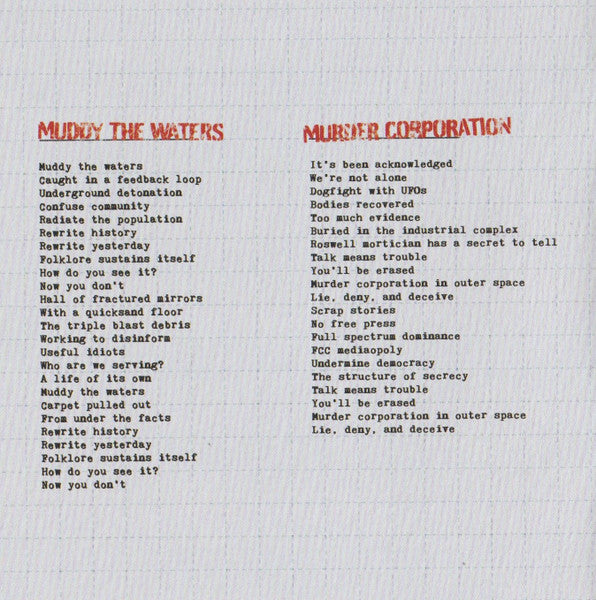 MUDDY THE WATERS
Muddy the waters
Caught in a feedback loop
Underground detonation
Confuse community
Radiate the population
Rewrite history
Rewrite yesterday
Folklore sustains itself
How do you see it?
Now you don't
Hall of fractured mirrors
With a quicksand floor
The triple blast debris
Working to disinform
Useful idiots
Who are we serving?
A life of its own
Muddy the waters
Carpet pulled out
From under the facts
Rewrite history
Rewrite yesterday
Folklore sustains itself
How do you see it?
Now you don't
MURDER CORPORATION
It's been acknowledged
We're not alone
Dogfight with UFOs
Bodies recovered
Too much evidence
Buried in the industrial complex
Roswell mortician has a secret to tell
Talk means trouble
You'll be erased
Murder corporation in outer space
Lie, deny, and deceive
Scrap stories
No free press
Full spectrum dominance
FCC mediaopoly
Undermine democracy
The structure of secrecy
Talk means trouble
You'll be erased
Murder corporation in outer space
Lie, deny, and deceive